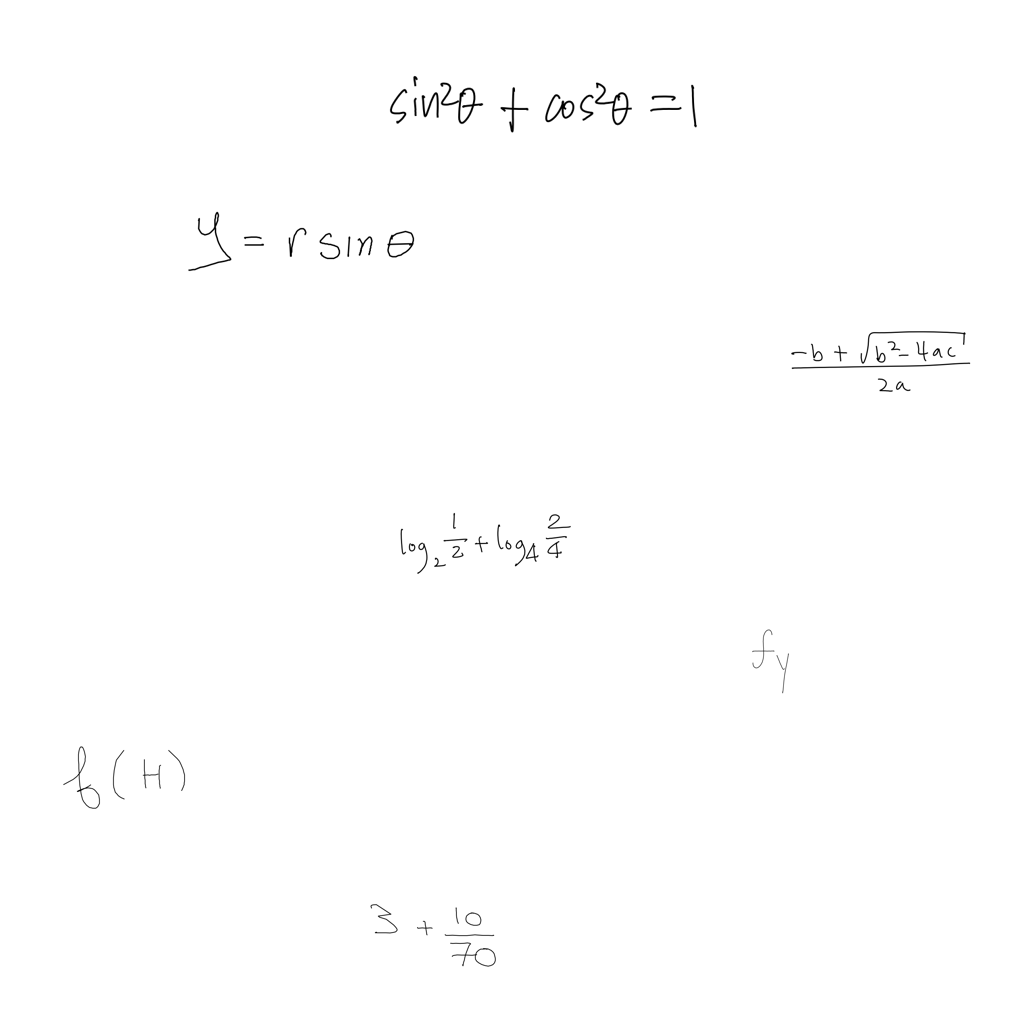 sin²θ + cos²θ = 1
y = r sin θ
\frac{-b + \sqrt{b^2 - 4ac}}{2a}
\log_2 \frac{1}{2} + \log_4 \frac{2}{4}
f_y
f(H)
3 + \frac{10}{70}